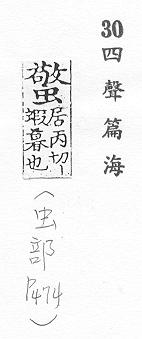 30四聲篇海
蟼居丙切丨
蝦暮也
(虫部P474)